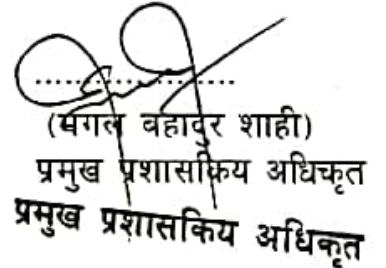 ....................
(मंगल बहादुर शाही)
प्रमुख प्रशासकिय अधिकृत
प्रमुख प्रशासकिय अधिकृत